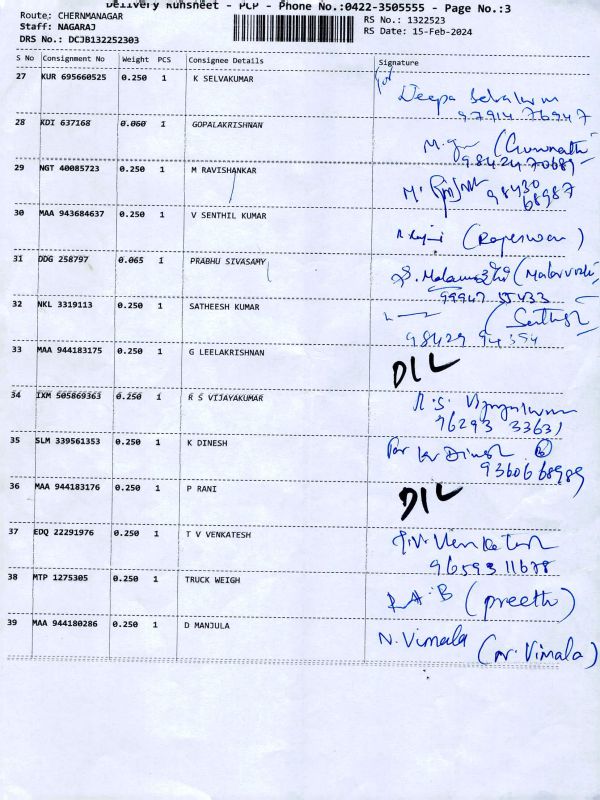 Delivery Runsheet - PCP - Phone No.:0422-3505555 - Page No.:3
Route: CHERNMANAGAR
Staff: NAGARAJ
DRS No.: DCJB132252303
RS No.: 1322523
RS Date: 15-Feb-2024
S No Consignment No Weight PCS Consignee Details Signature
27 KUR 695660525 0.250 1 K SELVAKUMAR Deepa Selvakum
97914 76947
28 KDI 637168 0.060 1 GOPALAKRISHNAN
98424 70689
29 NGT 40085723 0.250 1 M RAVISHANKAR 98430
68987
30 MAA 943684637 0.250 1 V SENTHIL KUMAR (Rageswari)
31 DDG 258797 0.065 1 PRABHU SIVASAMY
99947 55433
32 NKL 3319113 0.250 1 SATHEESH KUMAR
98429 94354
33 MAA 944183175 0.250 1 G LEELAKRISHNAN DIL
34 IXM 505869363 0.250 1 R S VIJAYAKUMAR R.S. Vijayakumar
76293 33631
35 SLM 339561353 0.250 1 K DINESH For K Dinesh
9360668989
36 MAA 944183176 0.250 1 P RANI DIL
37 EDQ 22291976 0.250 1 T V VENKATESH T.V. Venkatesh
9659311678
38 MTP 1275305 0.250 1 TRUCK WEIGH (preethi)
39 MAA 944180286 0.250 1 D MANJULA N. Vimala (N. Vimala)